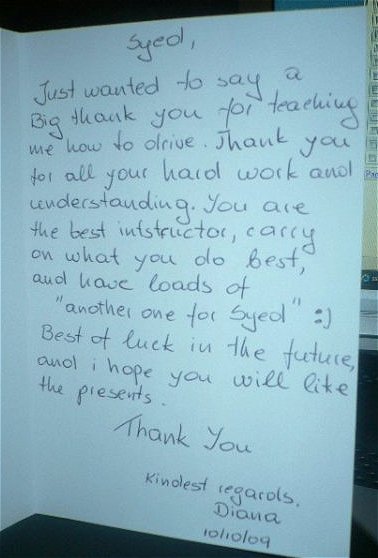 Syed,
Just wanted to say a
Big thank you for teaching
me how to drive. Thank you
for all your hard work and
understanding. You are
the best intstructor, carry
on what you do best,
and have loads of
"another one for Syed" :)
Best of luck in the future,
and i hope you will like
the presents.
Thank You
Kindest regards.
Diana
10/10/09